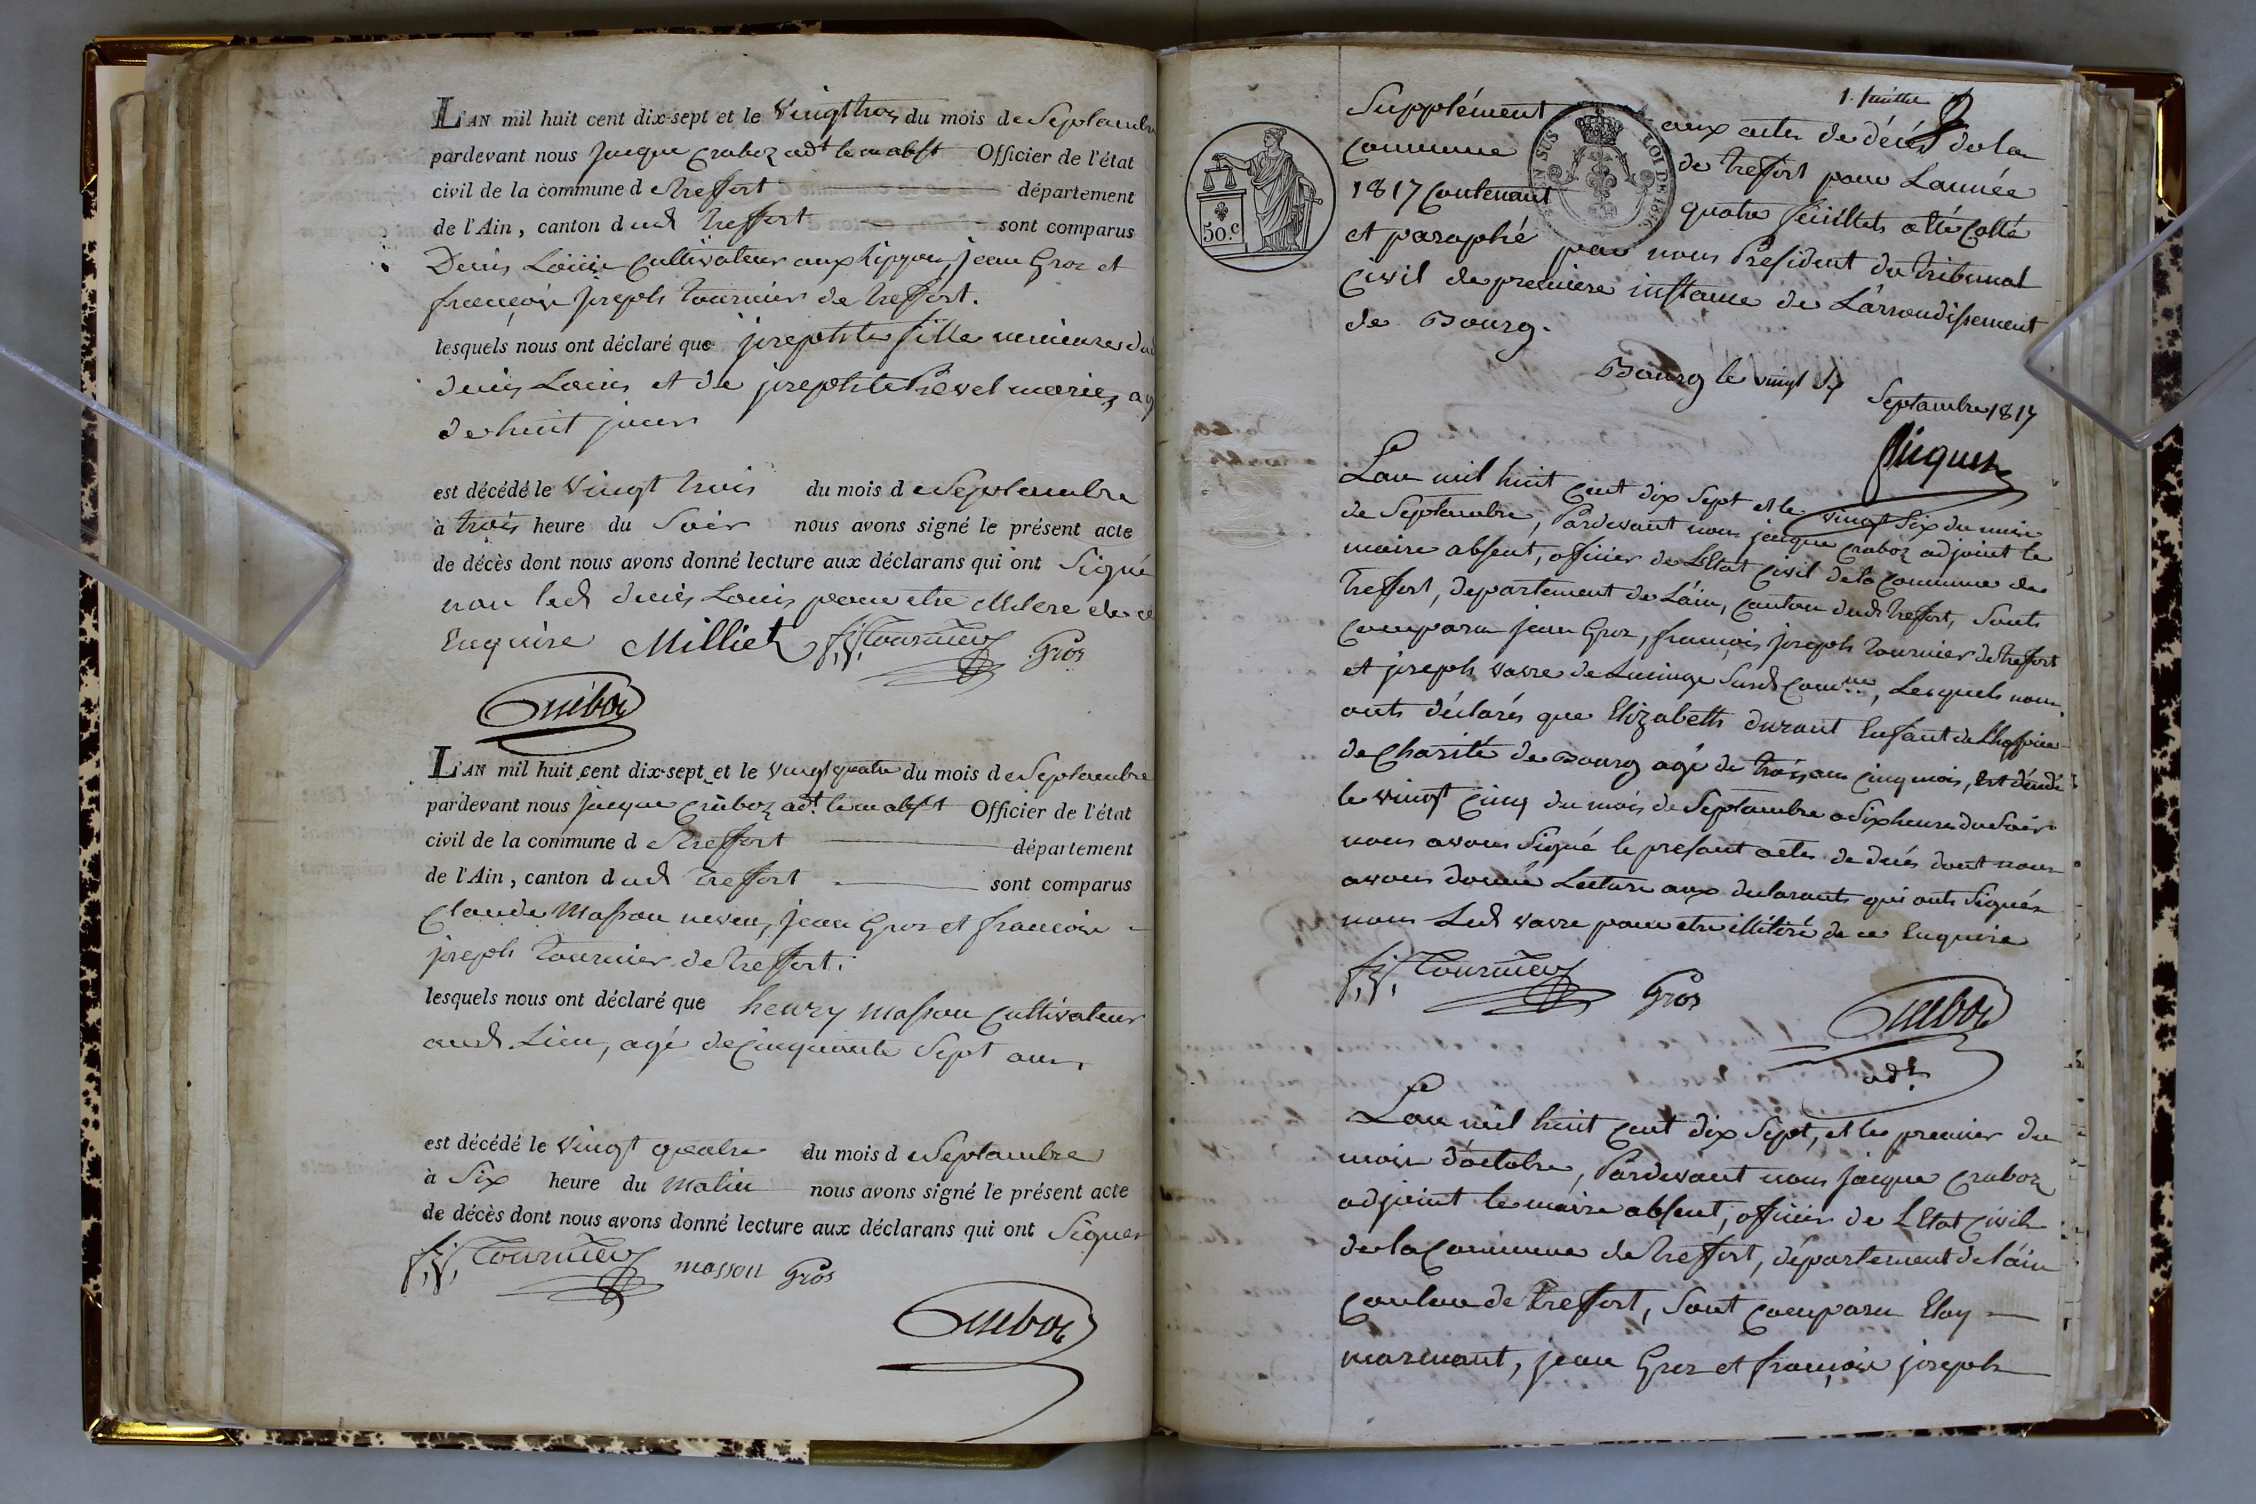 L'AN mil huit cent dix-sept et le vingt trois du mois de Septembre
pardevant nous jacque craboz adt le m abst Officier de l'état
civil de la commune d e treffort département
de l'Ain, canton d ud treffort sont comparus
Denis Louis Cultivateur aux hippou, jean Gros et
françois joseph tournier de treffort.
lesquels nous ont déclaré que josephte fille mineure du
denis Louis et de josephte Prevel mariés, ag
de huit jours
est décédé le vingt trois du mois d e Septembre
à trois heure du Soir nous avons signé le présent acte
de décès dont nous avons donné lecture aux déclarans qui ont Signé
non led denis Louis pour etre illitere de ce
Enquire Milliet f,j, Tournier Gros
L'AN mil huit cent dix-sept et le vingt quatre du mois d e Septembre
pardevant nous jacque craboz adt le m abst Officier de l'état
civil de la commune d e treffort département
de l'Ain, canton d ud treffort sont comparus
Claude Masson neveu, jean Gros et françois
joseph tournier de treffort;
lesquels nous ont déclaré que henry masson cultivateur
aud. Lieu, agé de cinquante Sept ans,
est décédé le vingt quatre du mois d e Septembre
à Six heure du matin nous avons signé le présent acte
de décès dont nous avons donné lecture aux déclarans qui ont Signer
f,j, Tournier masson Gros
1. feuillet
Supplément aux actes de décès de la
commune de treffort pour L'année
1817 Contenant quatre feuillets a été Cotté
et paraphé par nous Président du tribunal
Civil de premiere instance de L'arrondissement
de Bourg.
50.c
SUS
LOI DE 1816
Bourg le vingt Septembre 1817
Picquet
L'an mil huit cent dix Sept et le vingt Six du mois
de Septembre, Pardevant nous jacque craboz adjoint le
maire absent, officier de L'Etat Civil de la Commune de
treffort, departement de L'ain, canton dud. treffort, Sont
comparu jean Gros, françois joseph tournier de treffort
et joseph vavre de Lucinge Surd. Comne, Lesquels nous
ont déclarés que Elizabeth durant Enfant de L'hospice
de Charité de Bourg agé de trois ans cinq mois, Est décédé
le vingt cinq du mois de Septembre a Six heures du Soir
nous avons Signé le present acte de décés dont nous
avons donné Lecture aux declarants qui ont Signés
non Led. vavre pour etre illitéré de ce Enquire
f,j, Tournier Gros
adt
L'an mil huit cent dix Sept, et le premier du
mois d'octobre, Pardevant nous jacque craboz
adjoint le maire absent, officier de L'Etat Civil
de la Commune de treffort, département de l'ain
canton de treffort, Sont comparu Eloy
marmont, jean Gros et françois joseph